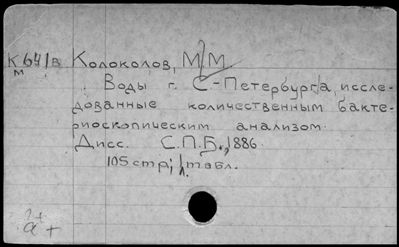 К641в Колоколов, М.М.
м
Воды г. С-Петербурга, иссле-
дованные количественным бакте-
риоскопическим анализом.
Дисс. С.П.Б., 1886
105 стр; 1 табл.